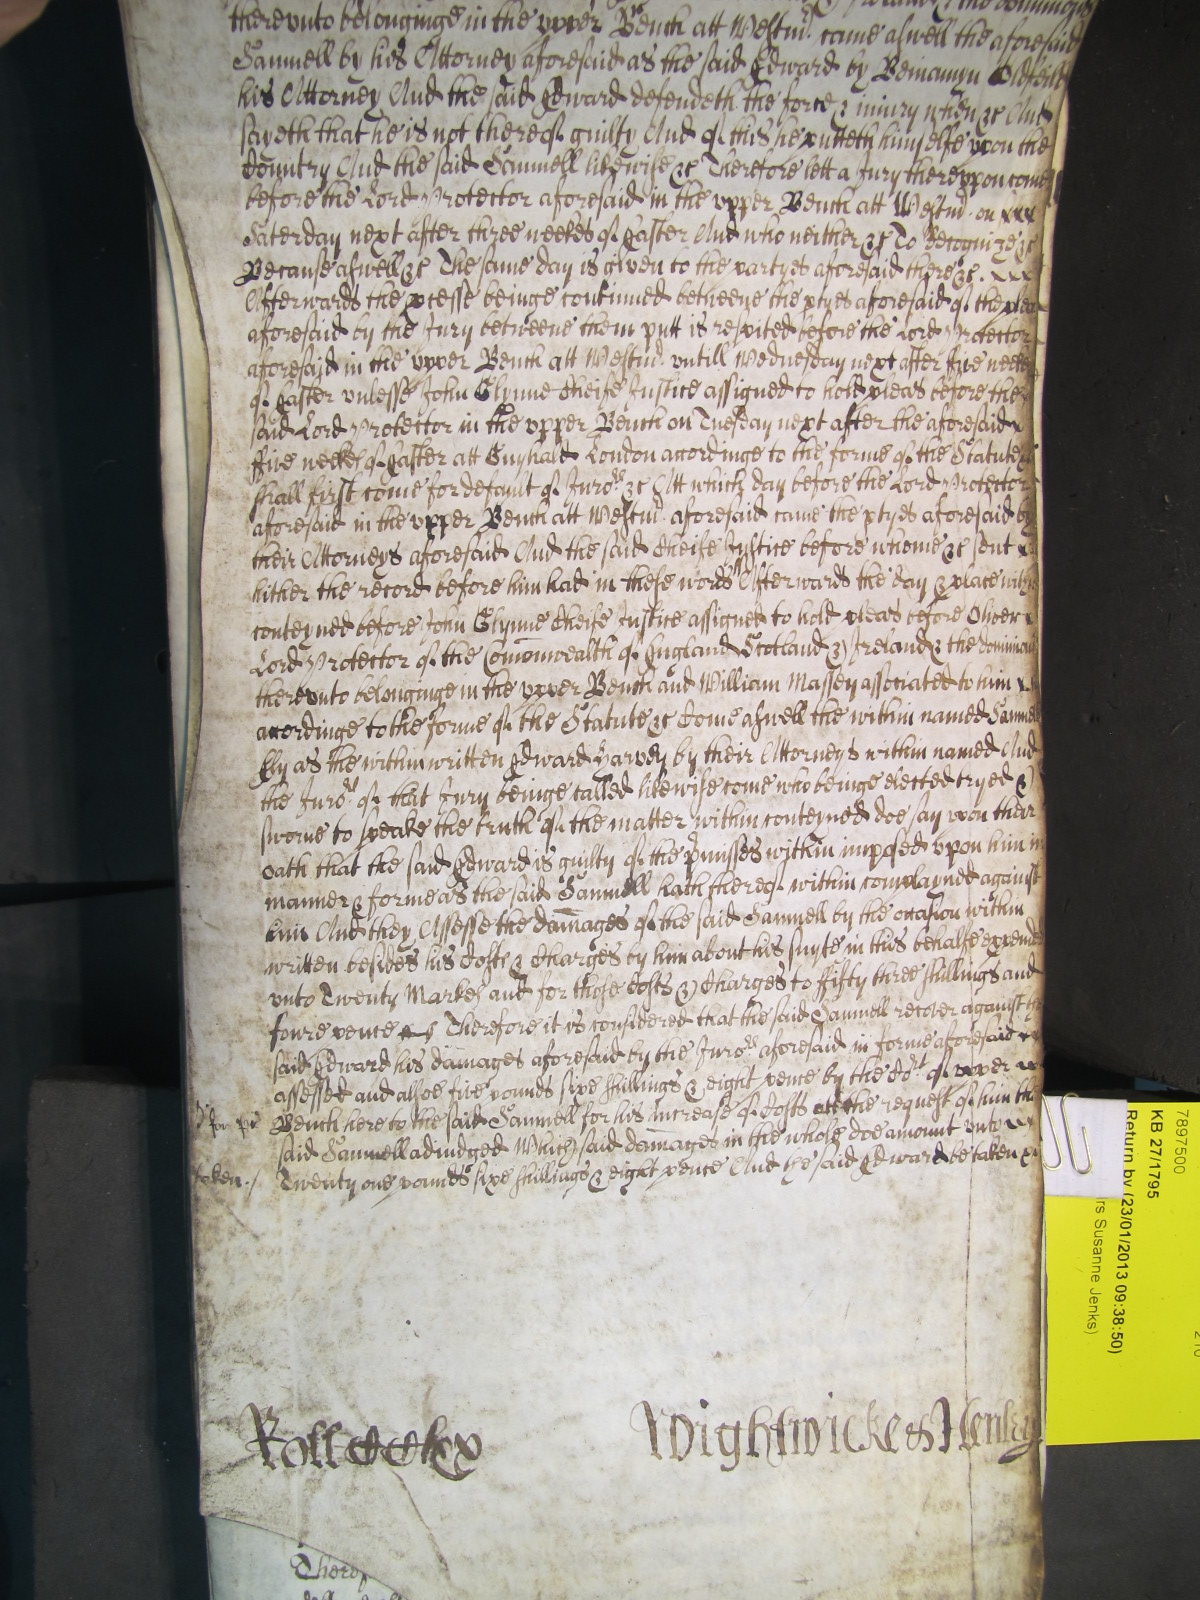 therevnto belonginge in the vpper Bench att Westm̃. came aswell the aforesaid
Samuell by his Attorney aforesaid as the said Edward by Beniamyn Oldfeild
his Attorney And the said Edward defendeth the force & iniury when &c And
sayeth that he is not thereof guilty And of this he putteth himselfe vpon the
Country And the said Samuell likewise &c Therefore lett a Jury therevppon come
before the Lord Protector aforesaid in the vpper Bench att Westm̃. on
Saterday next after three weekes of Easter And who neither &c To Recognize &c
Because aswell &c The same day is given to the partyes aforesaid there &c.
Afterwards the ꝓcesse beinge continued betweene the ptyes aforesaid of the plea
aforesaid by the Jury betweene them putt is respited before the Lord Protector
aforesaid in the vpper Bench att Westm̃. vntill Wednesday next after five weekes
of Easter vnlesse John Glynne Cheife Justice assigned to hold pleas before the
said Lord Protector in the vpper Bench on Tuesday next after the aforesaid
ffive weekes of Easter att Guyhald London acordinge to the forme of the Statute &c
shall first come for default of Juro.rs &c Att which day before the Lord Protector
aforesaid in the vpper Bench att Westm̃. aforesaid came the ptyes aforesaid by
their Attorneys aforesaid And the said Cheife Justice before whome &c sent
hither the record before him had in these words Afterwards the day & place within
conteyned before John Glynne Cheife Justice assigned to hold pleas before Oliver
Lord Protector of the Com̃onwealth of England Scotland & Ireland & the dominions
therevnto belonginge in the vpper Bench and William Massey associated to him
acordinge to the forme of the Statute &c Come aswell the within named Samuell
Ely as the within written Edward Harvey by their Attorneys within named And
the Juro.rs of that Jury beinge called likewise come who beinge elected tryed &
sworne to speake the truth of the matter within conteyned doe say vpon their
oath that the said Edward is guilty of the p̃misses within imposed vpon him in
manner & forme as the said Samuell hath thereof within complayned against
him And they Assesse the dam̃ages of the said Samuell by the occasion within
written besides his Costs & Charges by him about his suyte in this behalfe expended
vnto Twenty Markes and for those Costs & Charges to ffifty three shillings and
foure pence Therefore it is considered that the said Samuell recover against the
said Edward his dam̃ages aforesaid by the Juro.rs aforesaid in forme aforesaid
assessed and alsoe five pounds sixe shillings & eight pence by the Co.rt of vpper
Bench here to the said Samuell for his increase of Costs att the request of him the
said Samuell adiudged Which said dam̃ages in the whole doe amount vnto
taken./
Twenty one pounds sixe shillings & eight pence And the said Edward be taken &c
Roll Cockx
Wightwicke & Henley
Theref
7897500
KB 27/1795
Return by (23/01/2013 09:38:50)
rs Susanne Jenks)